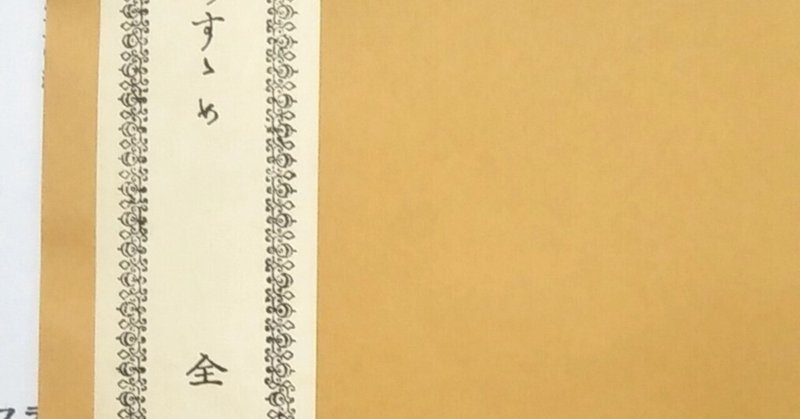 すゝめ
全